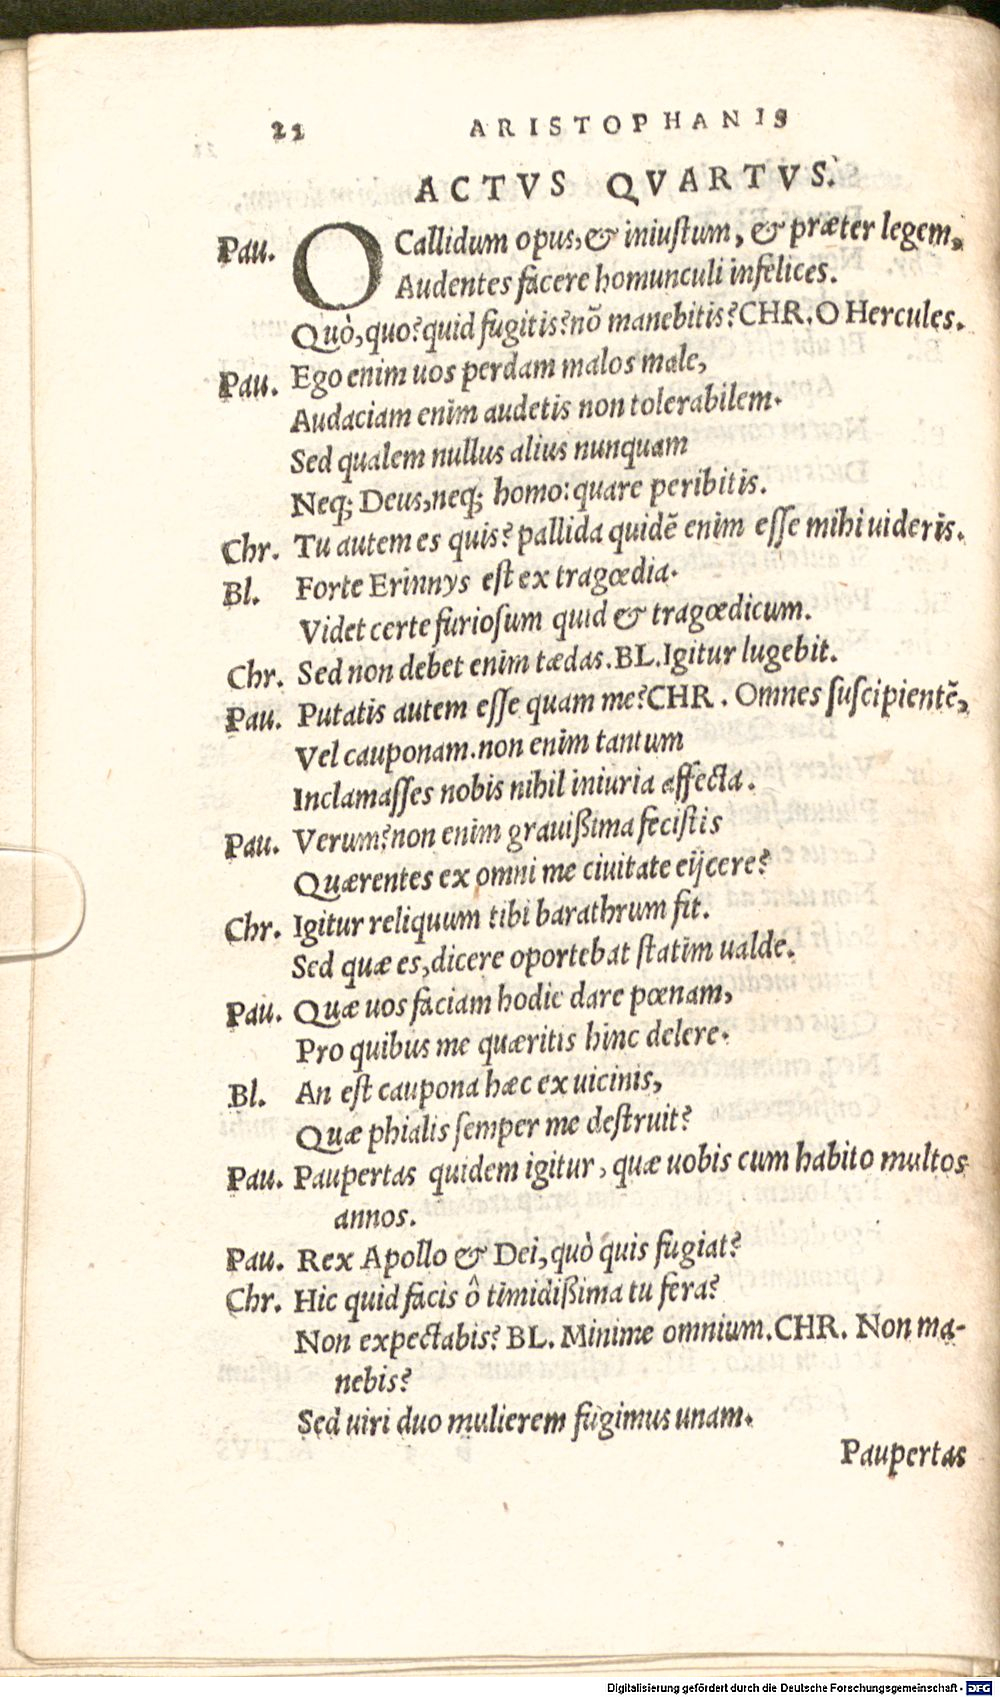 22 ARISTOPHANIS
ACTVS QVARTVS.
Pau. O Callidum opus, & iniustum, & præter legem,
Audentes facere homunculi infelices.
Quò, quo? quid fugitis? nõ manebitis? CHR. O Hercules.
Pau. Ego enim uos perdam malos male,
Audaciam enim audetis non tolerabilem.
Sed qualem nullus alius nunquam
Neq; Deus, neq; homo: quare peribitis.
Chr. Tu autem es quis? pallida quidẽ enim esse mihi uideris.
Bl. Forte Erinnys est ex tragœdia.
Videt certe furiosum quid & tragœdicum.
Chr. Sed non debet enim tædas. BL. Igitur lugebit.
Pau. Putatis autem esse quam me? CHR. Omnes suscipientẽ,
Vel cauponam. non enim tantum
Inclamasses nobis nihil iniuria affecta.
Pau. Verum? non enim grauißima fecistis
Quærentes ex omni me ciuitate eijcere?
Chr. Igitur reliquum tibi barathrum fit.
Sed quæ es, dicere oportebat statim ualde.
Pau. Quæ uos faciam hodie dare pœnam,
Pro quibus me quæritis hinc delere.
Bl. An est caupona hæc ex uicinis,
Quæ phialis semper me destruit?
Pau. Paupertas quidem igitur, quæ uobis cum habito multos
annos.
Pau. Rex Apollo & Dei, quò quis fugiat?
Chr. Hic quid facis ô timidißima tu fera?
Non expectabis? BL. Minime omnium. CHR. Non ma-
nebis?
Sed uiri duo mulierem fugimus unam.
Paupertas
Digitalisierung gefördert durch die Deutsche Forschungsgemeinschaft - DFG